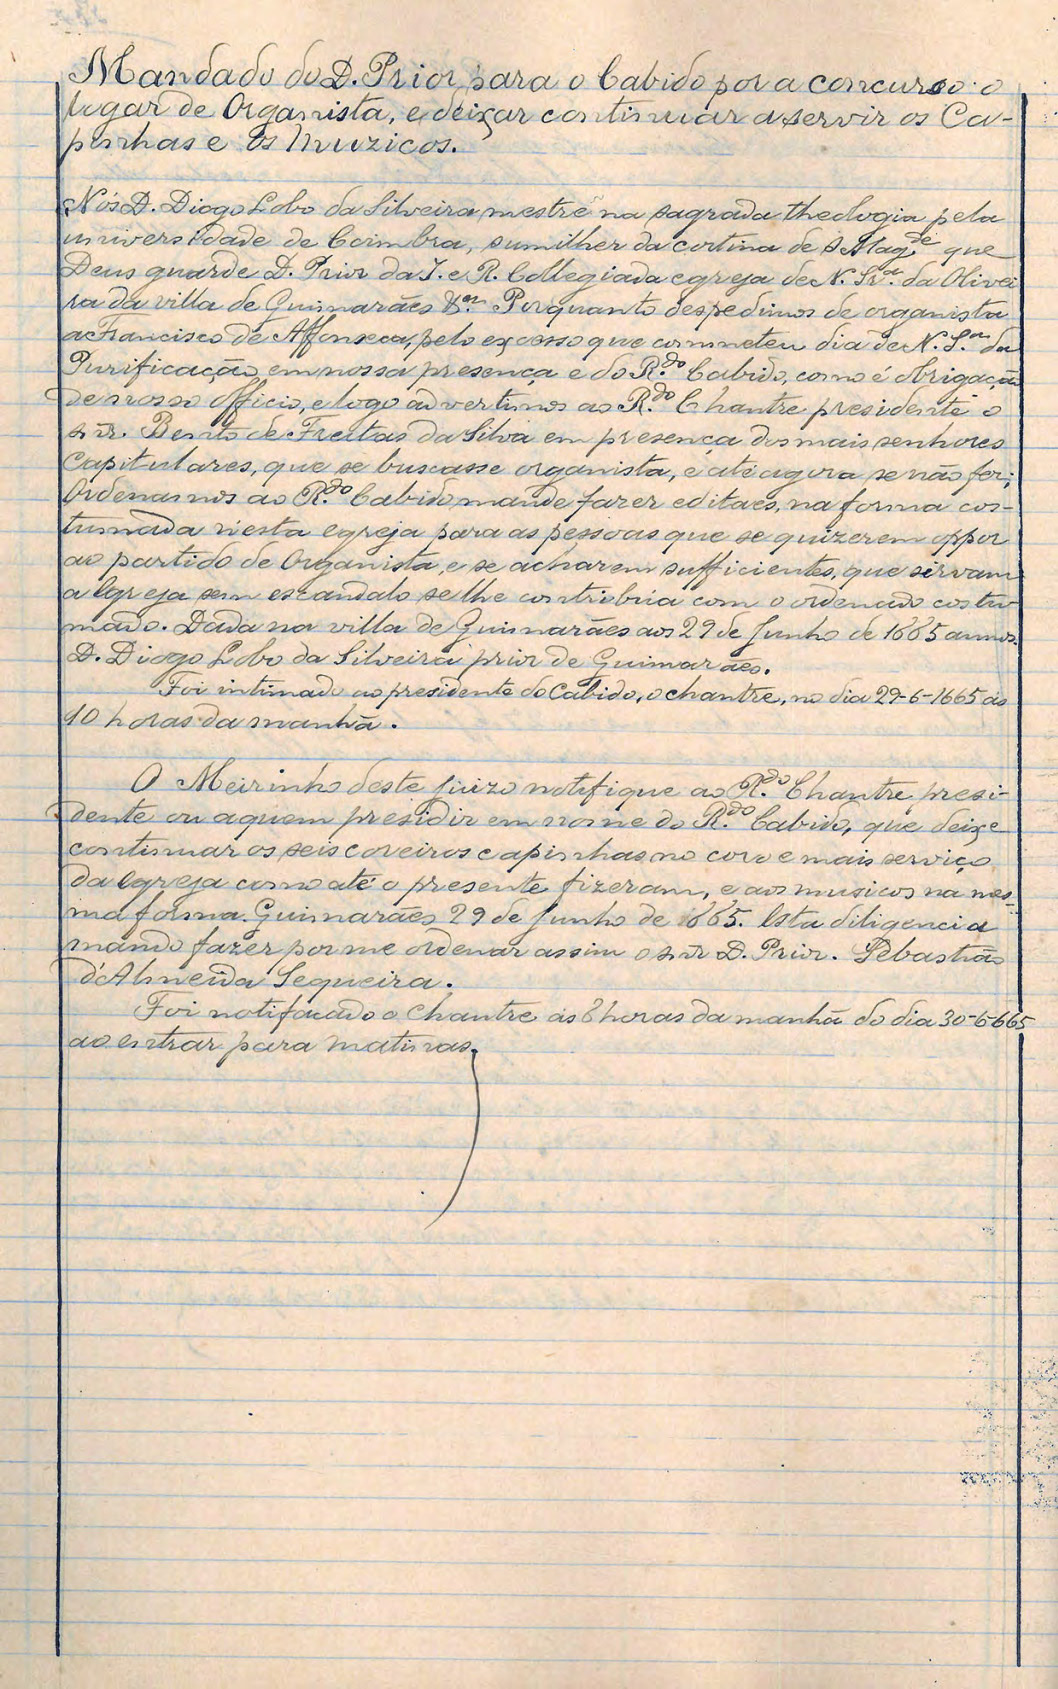 Mandado do D. Prior para o Cabido por a concurso o
lugar de Organista, e deixar continuar a servir os Ca-
pinhas e os Muzicos.
Nós D. Diogo Lobo da Silveira mestre na sagrada theologia pela
universidade de Coimbra, sumilher da cortina de S Mag.de que
Deus guarde D. Prior da I. e R. Collegiada egreja de N. Sr.a da Olivei
ra da villa de Guimarães &.a Porquanto despedimos de organista
a Francisco de Affonseca, pelo excesso que commeteu dia de N. S.a da
Purificação em nossa presença e do R.do Cabido, como é obrigação
de nosso officio, e logo advertimos ao R.do Chantre presidente o
snr. Bento de Freitas da Silva em presença dos mais senhores
Capitulares, que se buscasse organista, e até agora se não fez;
Ordenamos ao R.do Cabido mande fazer editaes, na forma cos-
tumada n'esta egreja para as pessoas que se quizerem oppor
ao partido de Organista, e se acharem sufficientes, que sirvam
a Egreja sem escandalo se lhe contribua com o ordenado costu
mado. Dada na villa de Guimarães aos 29 de Junho de 1665 annos.
D. Diogo Lobo da Silveira prior de Guimarães.
Foi intimado ao presidente do Cabido, o chantre, no dia 29-6-1665 ás
10 horas da manhã.
O Meirinho deste juizo notifique ao R.do Chantre presi-
dente ou a quem presidir em nome do R.do Cabido, que deixe
continuar os seis coreiros capinhas no coro e mais serviço
da Egreja como até o presente fizeram, e aos musicos na mes-
ma forma. Guimarães 29 de Junho de 1665. Esta diligencia
mando fazer por me ordenar assim o snr D. Prior. Sebastião
d'Almeida Sequeira.
Foi notificado o Chantre ás 8 horas da manhã do dia 30-6-665
ao entrar para matinas.